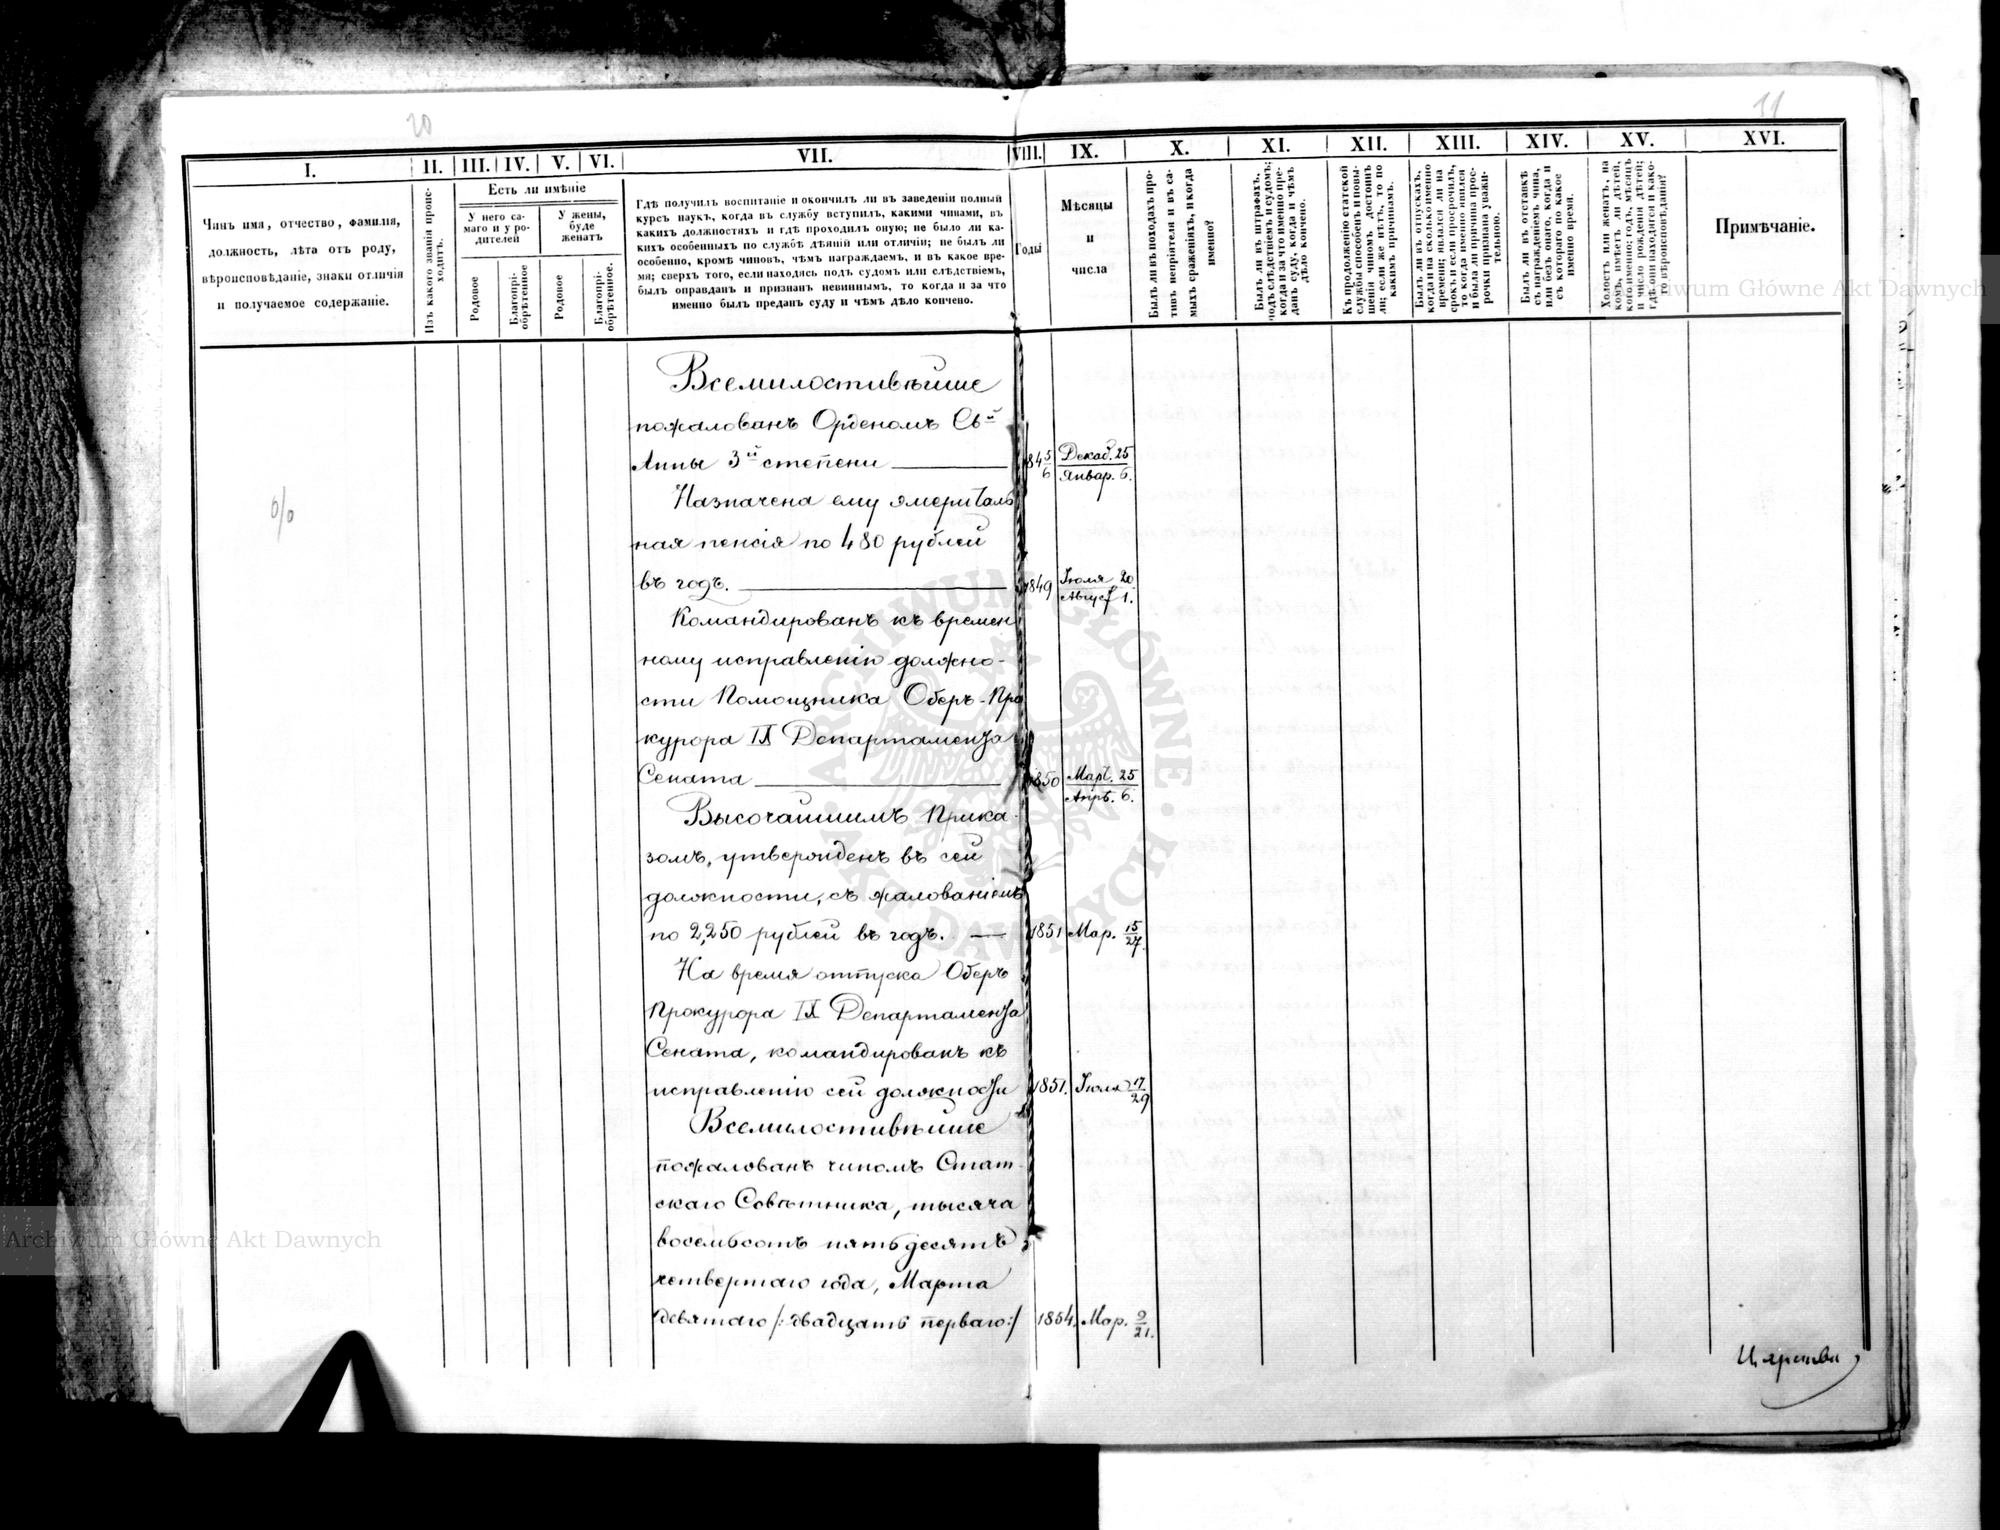 20
11
I.
II.
III.
IV.
V.
VI.
VII.
VIII.
IX.
X.
XI.
XII.
XIII.
XIV.
XV.
XVI.
Чинъ имя, отчество, фамилія,
должность, лѣта отъ роду,
вѣроисповѣданіе, знаки отличія
и получаемое содержаніе.
Изъ какого званія проис-
ходитъ.
Есть ли имѣніе
У него са-
маго и у ро-
дителей
У жены,
буде
женатъ
Родовое
Благопрі-
обрѣтенное
Родовое
Благопрі-
обрѣтенное.
Гдѣ получилъ воспитаніе и окончилъ ли въ заведеніи полный
курсъ наукъ, когда въ службу вступилъ, какими чинами, въ
какихъ должностяхъ и гдѣ проходилъ оную; не было ли ка-
кихъ особенныхъ по службѣ дѣяній или отличіи; не былъ ли
особенно, кромѣ чиновъ, чѣмъ награждаемъ, и въ какое вре-
мя; сверхъ того, если находясь подъ судомъ или слѣдствіемъ,
былъ оправданъ и признанъ невиннымъ, то когда и за что
именно былъ преданъ суду и чѣмъ дѣло кончено.
Годы
Мѣсяцы
и
числа
Былъ ли въ походахъ про-
тивъ непріятеля и въ са-
мыхъ сраженіяхъ, и когда
именно?
Былъ ли въ штрафахъ,
подъ слѣдствіемъ и судомъ;
когда и за что именно пре-
данъ суду, когда и чѣмъ
дѣло кончено.
Къ продолженію статской
службы способенъ и повы-
шенія чиномъ достоинъ
ли; если же нѣтъ, то по
какимъ причинамъ.
Былъ ли въ отпускахъ,
когда и на сколько именно
времени; являлся ли на
срокъ и если просрочилъ,
то когда именно явился
и была ли причина прос-
рочки признана уважи-
тельною.
Былъ ли въ отставкѣ
съ награжденіемъ чина,
или безъ онаго, когда и
съ котораго по какое
именно время.
Холостъ или женатъ, на
комъ, имѣетъ ли дѣтей,
кого именно; годъ, мѣсяцъ
и число рожденія дѣтей;
гдѣ они находятся и како-
го вѣроисповѣданія?
Примѣчаніе.
Всемилостивѣйше
пожалованъ Орденомъ Свй
Анны 3й степени 1845/6 Декаб. 25 / Январ. 6.
Назначена ему эмериталь
ная пенсія по 480 рублей
въ годъ. 1849 Іюля 20 / Август 1.
Командированъ къ времен
ному исправленію должно-
сти Помощника Оберъ-Про
курора IX Департамента
Сената 1850 Март. 25 / Апрѣ. 6.
Высочайшимъ Прика-
зомъ, утвержденъ въ сей
должности, съ жалованіемъ
по 2,250 рублей въ годъ. 1851 Мар. 15/27.
На время отпуска Оберъ
Прокурора IX Департамента
Сената, командированъ къ
исправленію сей должности 1851. Іюля 17/29
Всемилостивѣйше
пожалованъ чиномъ Стат-
скаго Совѣтника, тысяча
восемьсотъ пятьдесятъ
четвертаго года, Марта
девятаго /: двадцать перваго :/ 1854. Мар. 9/21.
Archiwum Główne Akt Dawnych
ARCHIWUM GŁÓWNE AKT DAWNYCH
Archiwum Główne Akt Dawnych